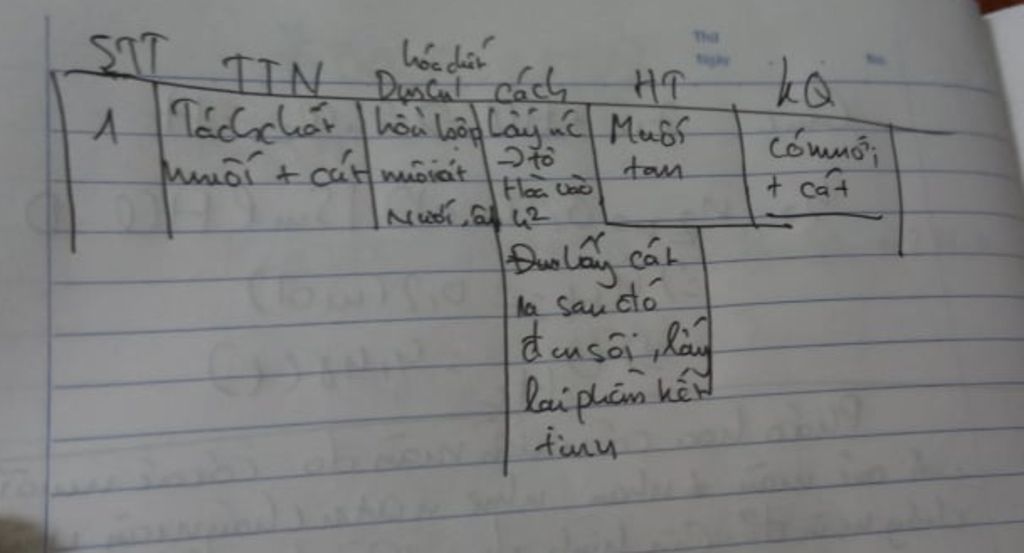 hóa chất
STT TTN Dụng cụ cách HT KQ
1 Tách chất hỗn hợp Lấy Muối có muối
muối + cát muối cát → tan + cát
Nước, Hoà vào
Đưa lấy cát
ra sau đó
đun sôi, lấy
lại phần kết
tinh